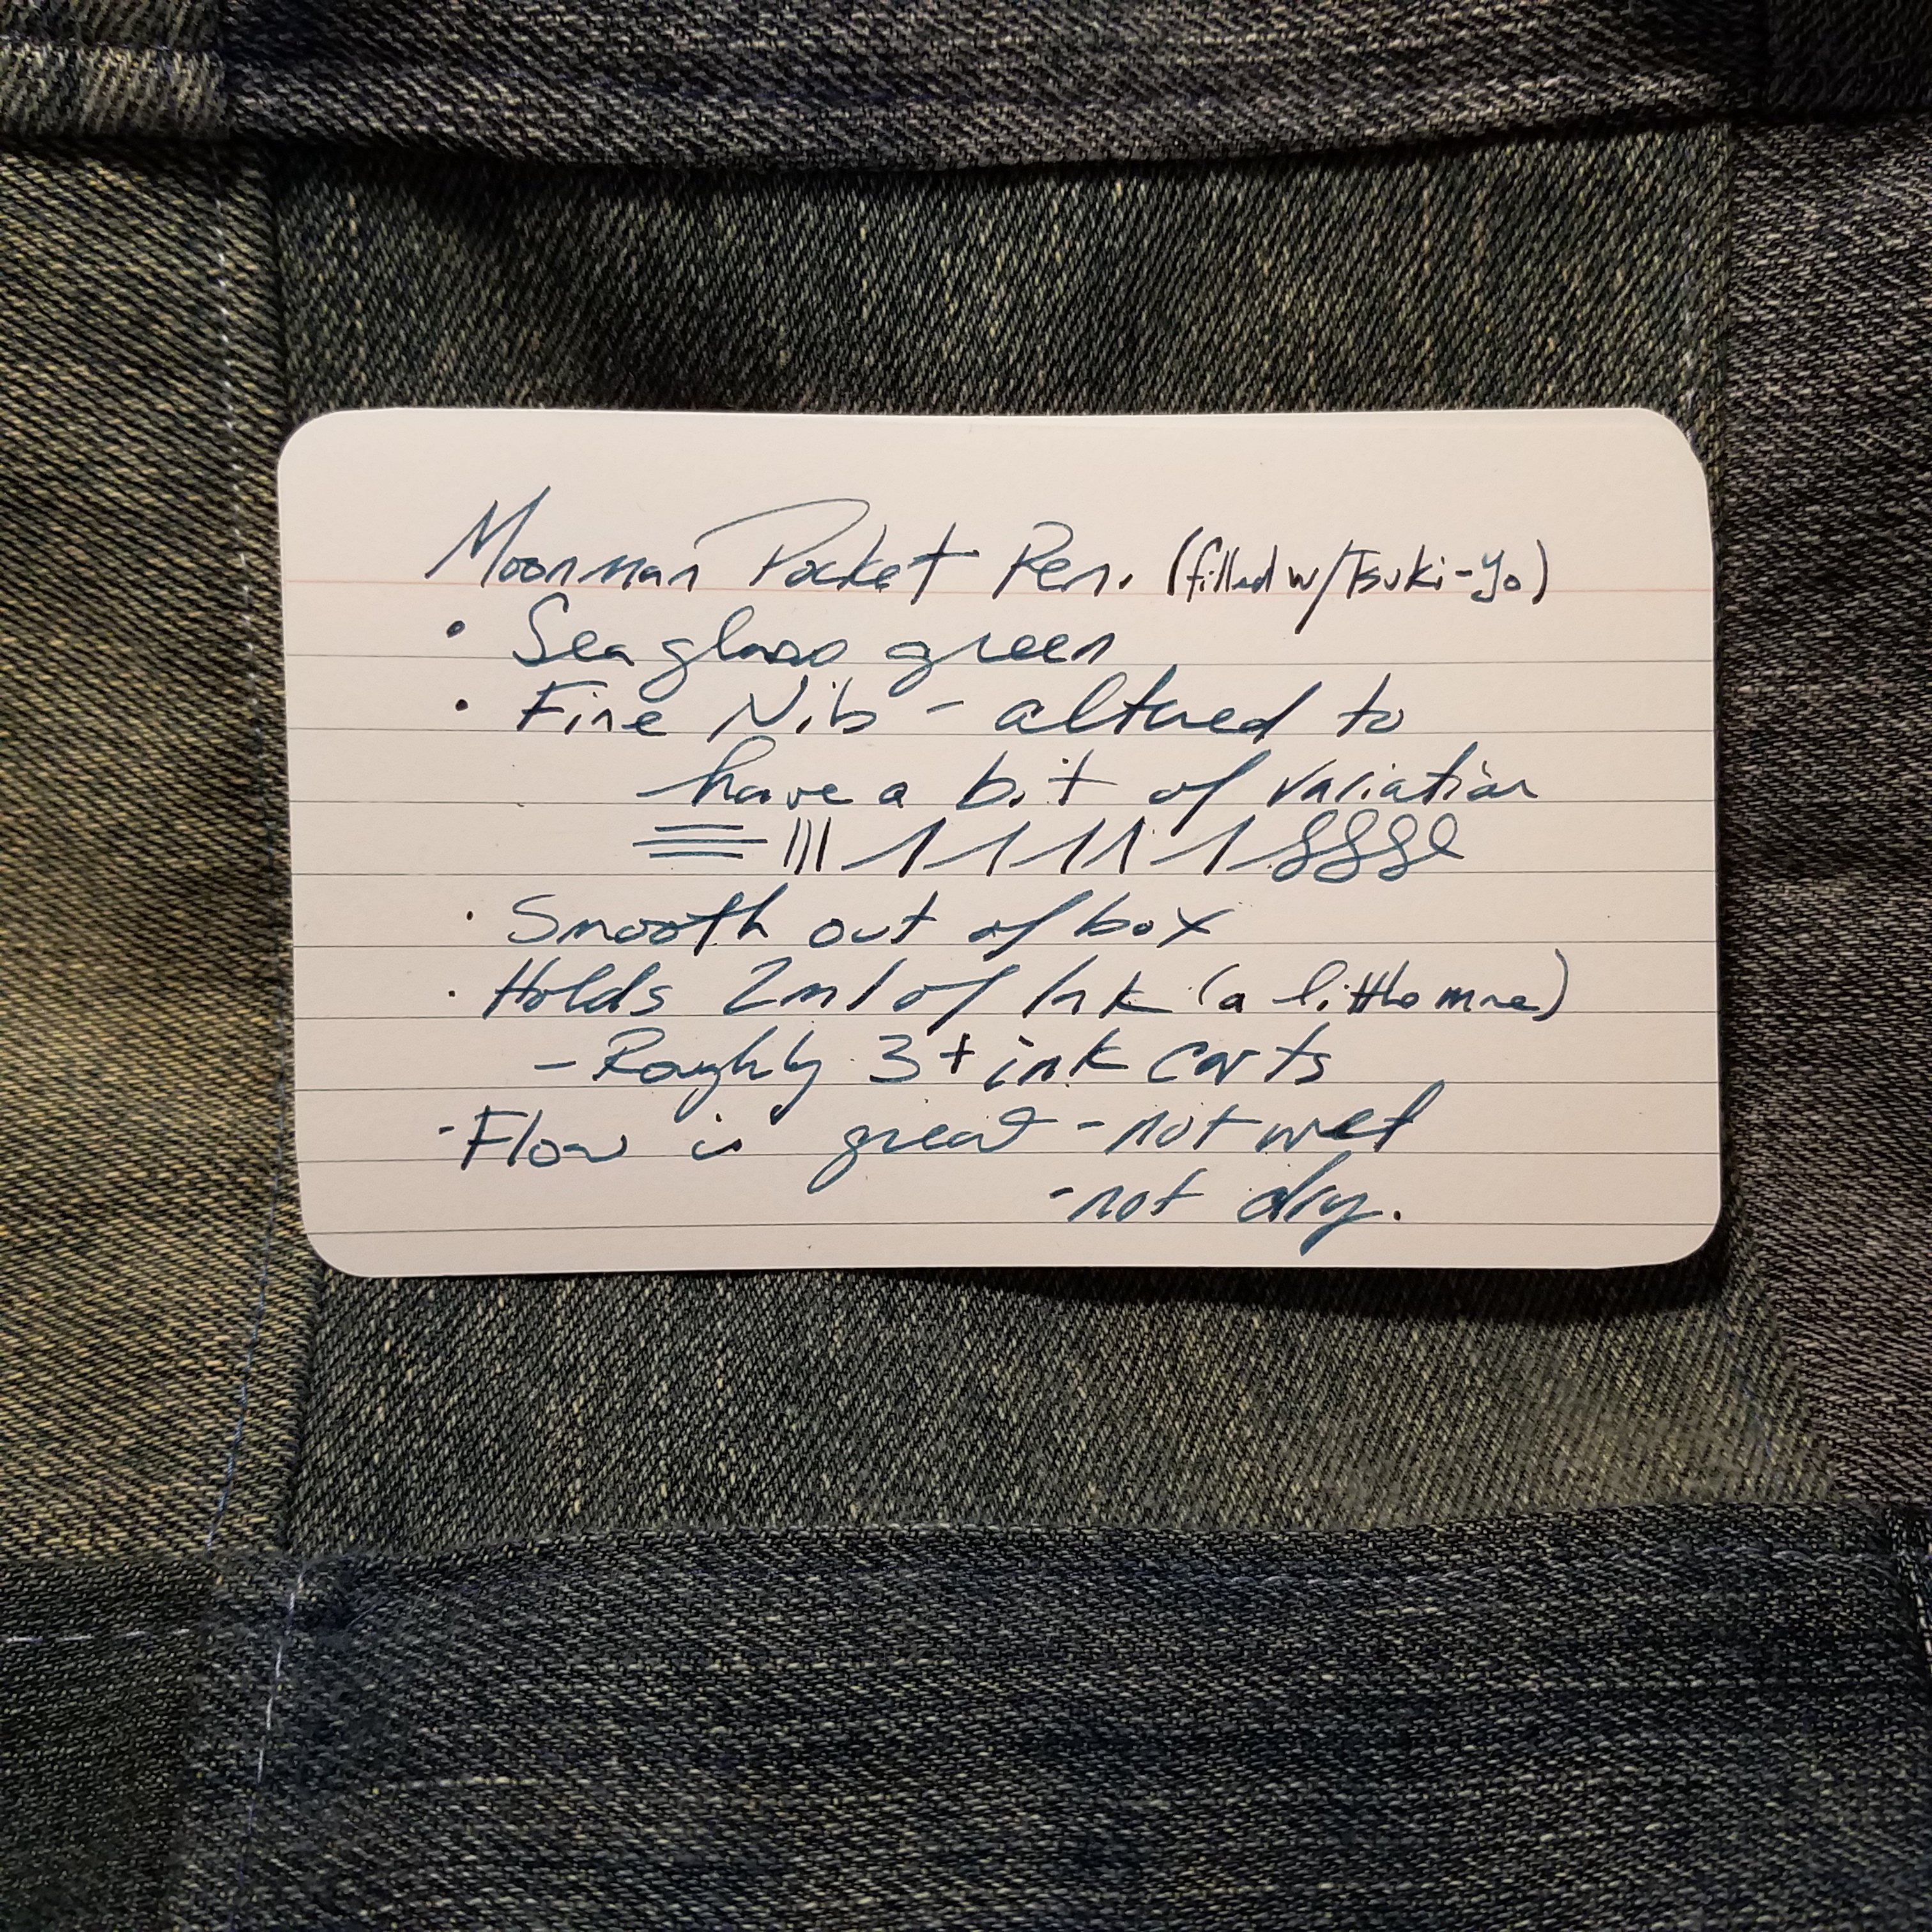 Moonman Pocket Pen. (filled w/Tsuki-yo)
• Sea glass green
• Fine Nib - altered to
have a bit of variation
• Smooth out of box
• Holds 2ml of Ink (a little more)
- Roughly 3+ ink carts
- Flow is great - not wet
- not dry.